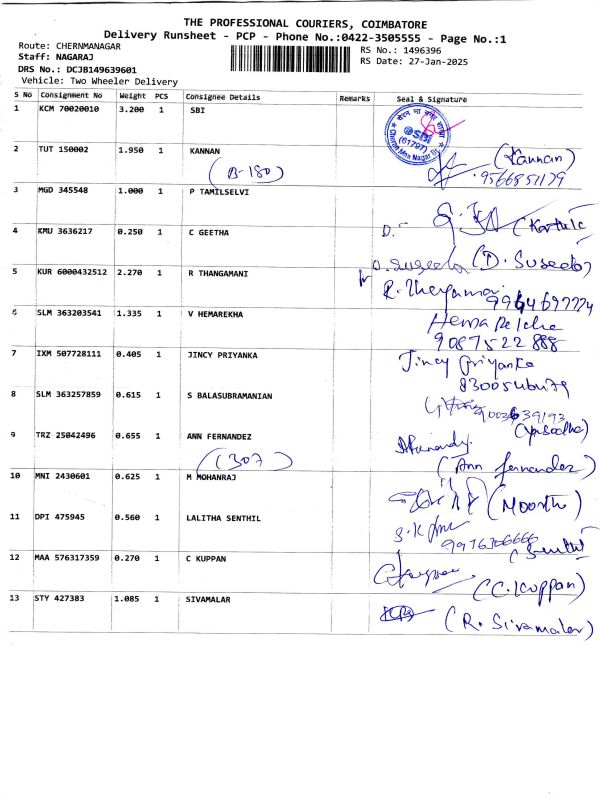 THE PROFESSIONAL COURIERS, COIMBATORE
Delivery Runsheet - PCP - Phone No.:0422-3505555 - Page No.:1
Route: CHERNMANAGAR
RS No.: 1496396
Staff: NAGARAJ
RS Date: 27-Jan-2025
DRS No.: DCJB149639601
Vehicle: Two Wheeler Delivery
S No Consignment No Weight PCS Consignee Details Remarks Seal & Signature
1 KCM 70020010 3.200 1 SBI
SBI
(61797)
2 TUT 150002 1.950 1 KANNAN (Kannan)
(B-180) 9566851179
3 MGD 345548 1.000 1 P TAMILSELVI
4 KMU 3636217 0.250 1 C GEETHA D.
D. Suseela (D. Suseela)
5 KUR 6000432512 2.270 1 R THANGAMANI
6 SLM 363203541 1.335 1 V HEMAREKHA Hema
9087522888
7 IXM 507728111 0.405 1 JINCY PRIYANKA Jincy Priyanka
8 SLM 363257859 0.615 1 S BALASUBRAMANIAN
(Yasodha)
9 TRZ 25042496 0.655 1 ANN FERNANDEZ
(307) (Ann fernandez)
10 MNI 2430601 0.625 1 M MOHANRAJ (Moorthi)
11 DPI 475945 0.560 1 LALITHA SENTHIL
(Senthil
12 MAA 576317359 0.270 1 C KUPPAN (C. Kuppan)
13 STY 427383 1.085 1 SIVAMALAR (R. Sivamalar)